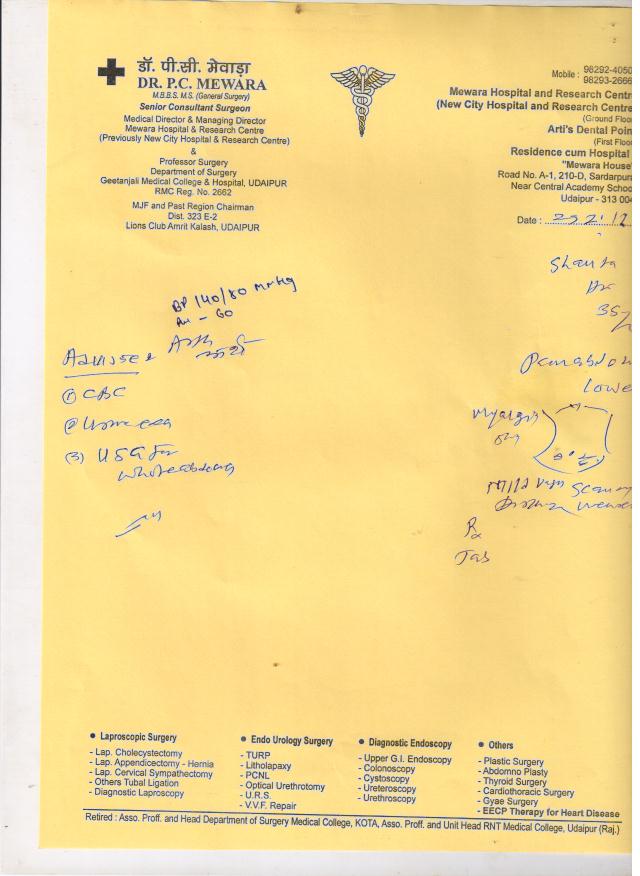 डॉ. पी.सी. मेवाड़ा
DR. P.C. MEWARA
M.B.B.S. M.S. (General Surgery)
Senior Consultant Surgeon
Medical Director & Managing Director
Mewara Hospital & Research Centre
(Previously New City Hospital & Research Centre)
&
Professor Surgery
Department of Surgery
Geetanjali Medical College & Hospital, UDAIPUR
RMC Reg. No. 2662
MJF and Past Region Chairman
Dist. 323 E-2
Lions Club Amrit Kalash, UDAIPUR
Mobile : 98292-4050
98293-2666
Mewara Hospital and Research Centr
(New City Hospital and Research Centre
(Ground Floo
Arti's Dental Poin
(First Floo
Residence cum Hospital
"Mewara House"
Road No. A-1, 210-D, Sardarpur
Near Central Academy Schoo
Udaipur - 313 004
Date :
BP 140/80 mmHg
- 60
① CBC
(3) USG for
35
Lowe
Mild
Rx
Tab
• Laproscopic Surgery
- Lap. Cholecystectomy
- Lap. Appendicectomy - Hernia
- Lap. Cervical Sympathectomy
- Others Tubal Ligation
- Diagnostic Laproscopy
• Endo Urology Surgery
- TURP
- Litholapaxy
- PCNL
- Optical Urethrotomy
- U.R.S.
- V.V.F. Repair
• Diagnostic Endoscopy
- Upper G.I. Endoscopy
- Colonoscopy
- Cystoscopy
- Ureteroscopy
- Urethroscopy
• Others
- Plastic Surgery
- Abdomno Plasty
- Thyroid Surgery
- Cardiothoracic Surgery
- Gyae Surgery
- EECP Therapy for Heart Disease
Retired : Asso. Proff. and Head Department of Surgery Medical College, KOTA, Asso. Proff. and Unit Head RNT Medical College, Udaipur (Raj.)